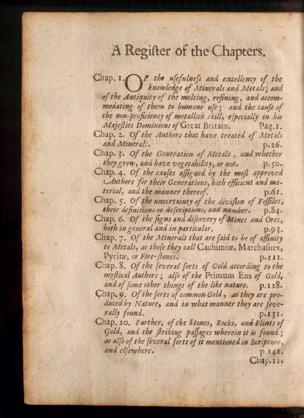 A Register of the Chapters.
Chap. 1. OF the usefulness and excellency of the
knowledge of Minerals and Metals; and
of the Antiquity of the melting, refining, and accom-
modating of them to humane use; and the cause of
the non-proficiency of metallick skill, especially in his
Majesties Dominions of Great Britain. Pag. 1.
Chap. 2. Of the Authors that have treated of Metals
and Minerals. p.26.
Chap. 3. Of the Generation of Metals, and whether
they grow, and have vegetability, or not. p.50.
Chap. 4. Of the causes assigned by the most approved
Authors for their Generations, both efficient and ma-
terial, and the manner thereof. p.61.
Chap. 5. Of the uncertainty of the division of Fossiles,
their definitions or descriptions, and number. p.84.
Chap. 6. Of the signs and discovery of Mines and Ores,
both in general and in particular. p.93.
Chap. 7. Of the Minerals that are said to be of affinity
to Metals, as those they call Cachimiæ, Marchasites,
Pyritæ, or Fire-stones. p.111.
Chap. 8. Of the several sorts of Gold according to the
mystical Authors; also of the Primum Ens of Gold,
and of some other things of the like nature. p.118.
Chap. 9. Of the sorts of common Gold, as they are pro-
duced by Nature, and in what manner they are seve-
rally found. p.131.
Chap. 10. Further, of the Stones, Rocks, and Flints of
Gold, and the striking passages wherein it is found;
as also of the several sorts of it mentioned in Scripture,
and elsewhere. p.141.
Chap. 11.